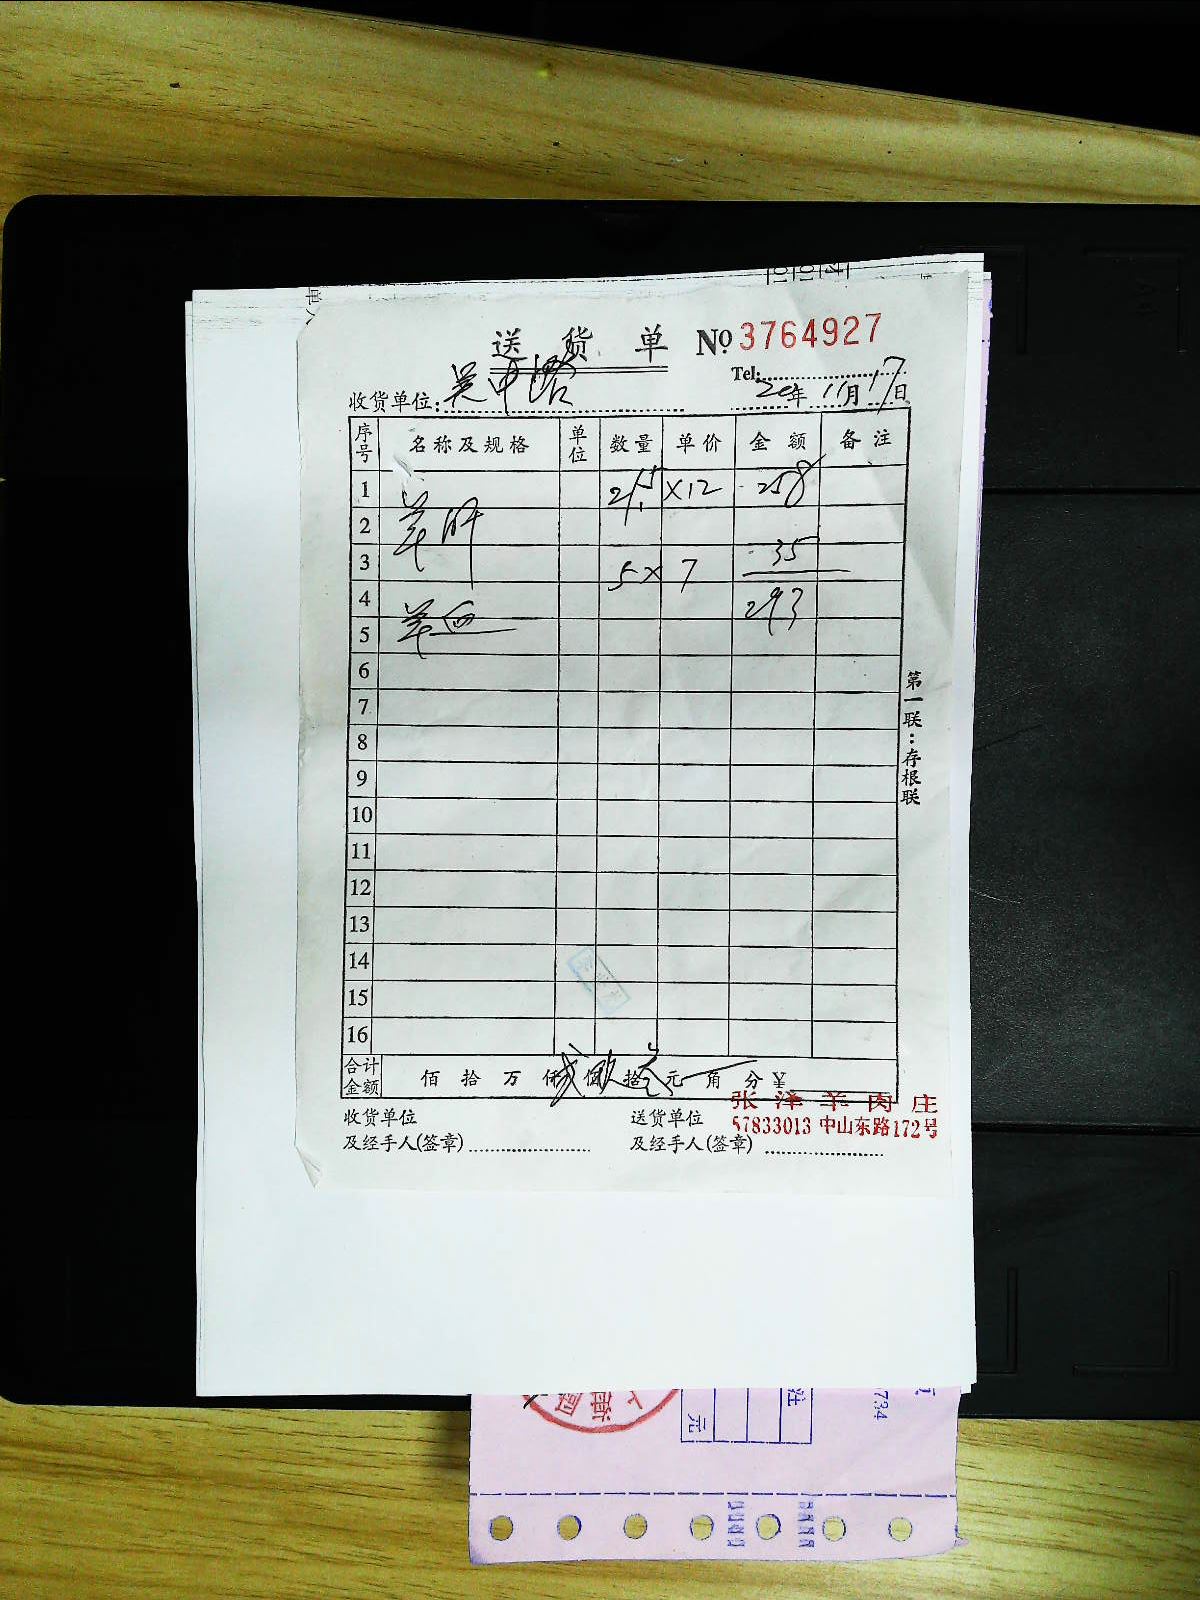 送货单 № 3764927
Tel:
收货单位: 吴中路 20年11月17日
序号 名称及规格 单位 数量 单价 金额 备注
1 21.5 ×12 258
2 羊肝
3 5× 7 35
4 293
5 羊血
6
7
8
9
10
11
12
13
14
15
16
合计金额 佰 拾 万 仟 贰佰 玖拾 叁元 角 分 ¥
第一联：存根联
张泽羊肉庄
57833013 中山东路172号
收货单位 送货单位
及经手人(签章) 及经手人(签章)
元
734